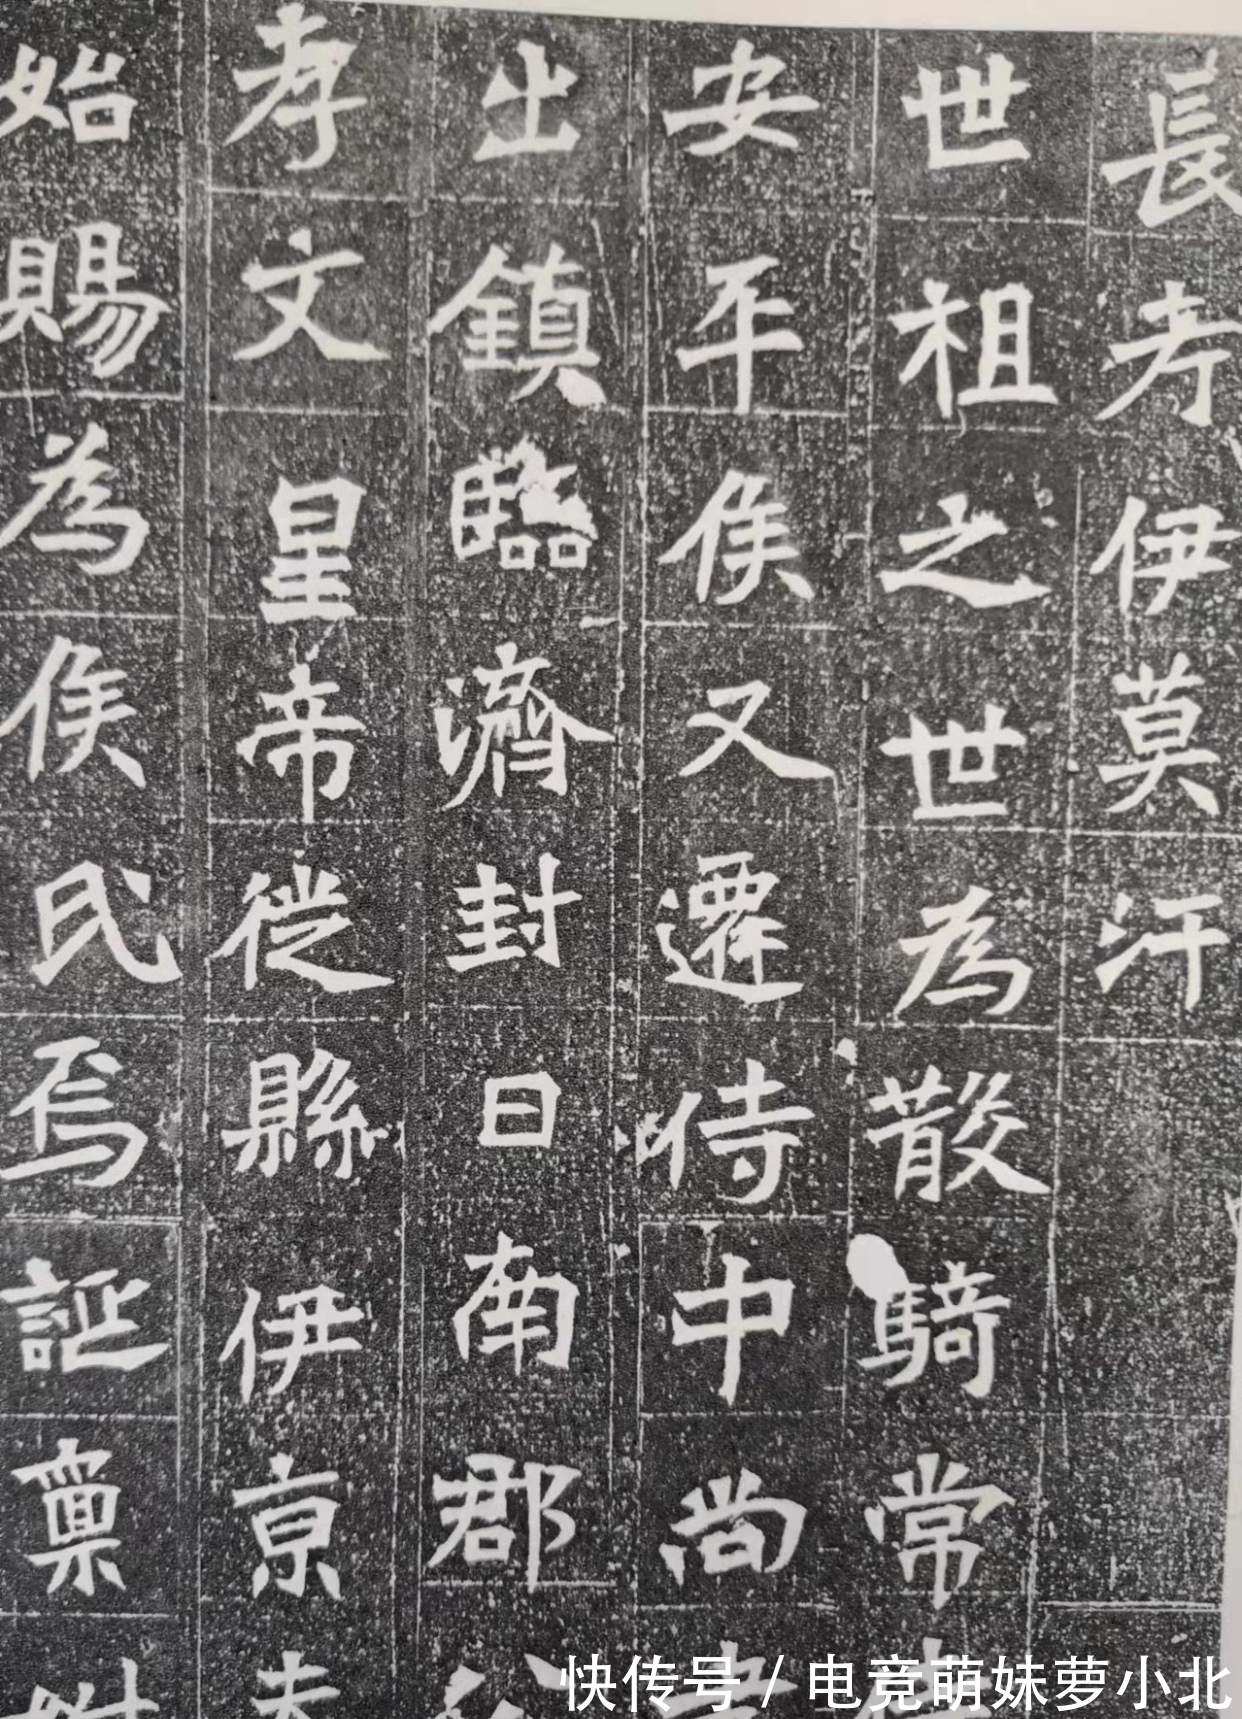 長考伊莫汗
世祖之世為散騎常
安平侯又遷侍中尚
出鎮臨濟封日南郡
孝文皇帝徙縣伊京
始賜為侯氏焉誕稟
快传号 / 电竞萌妹萝小北